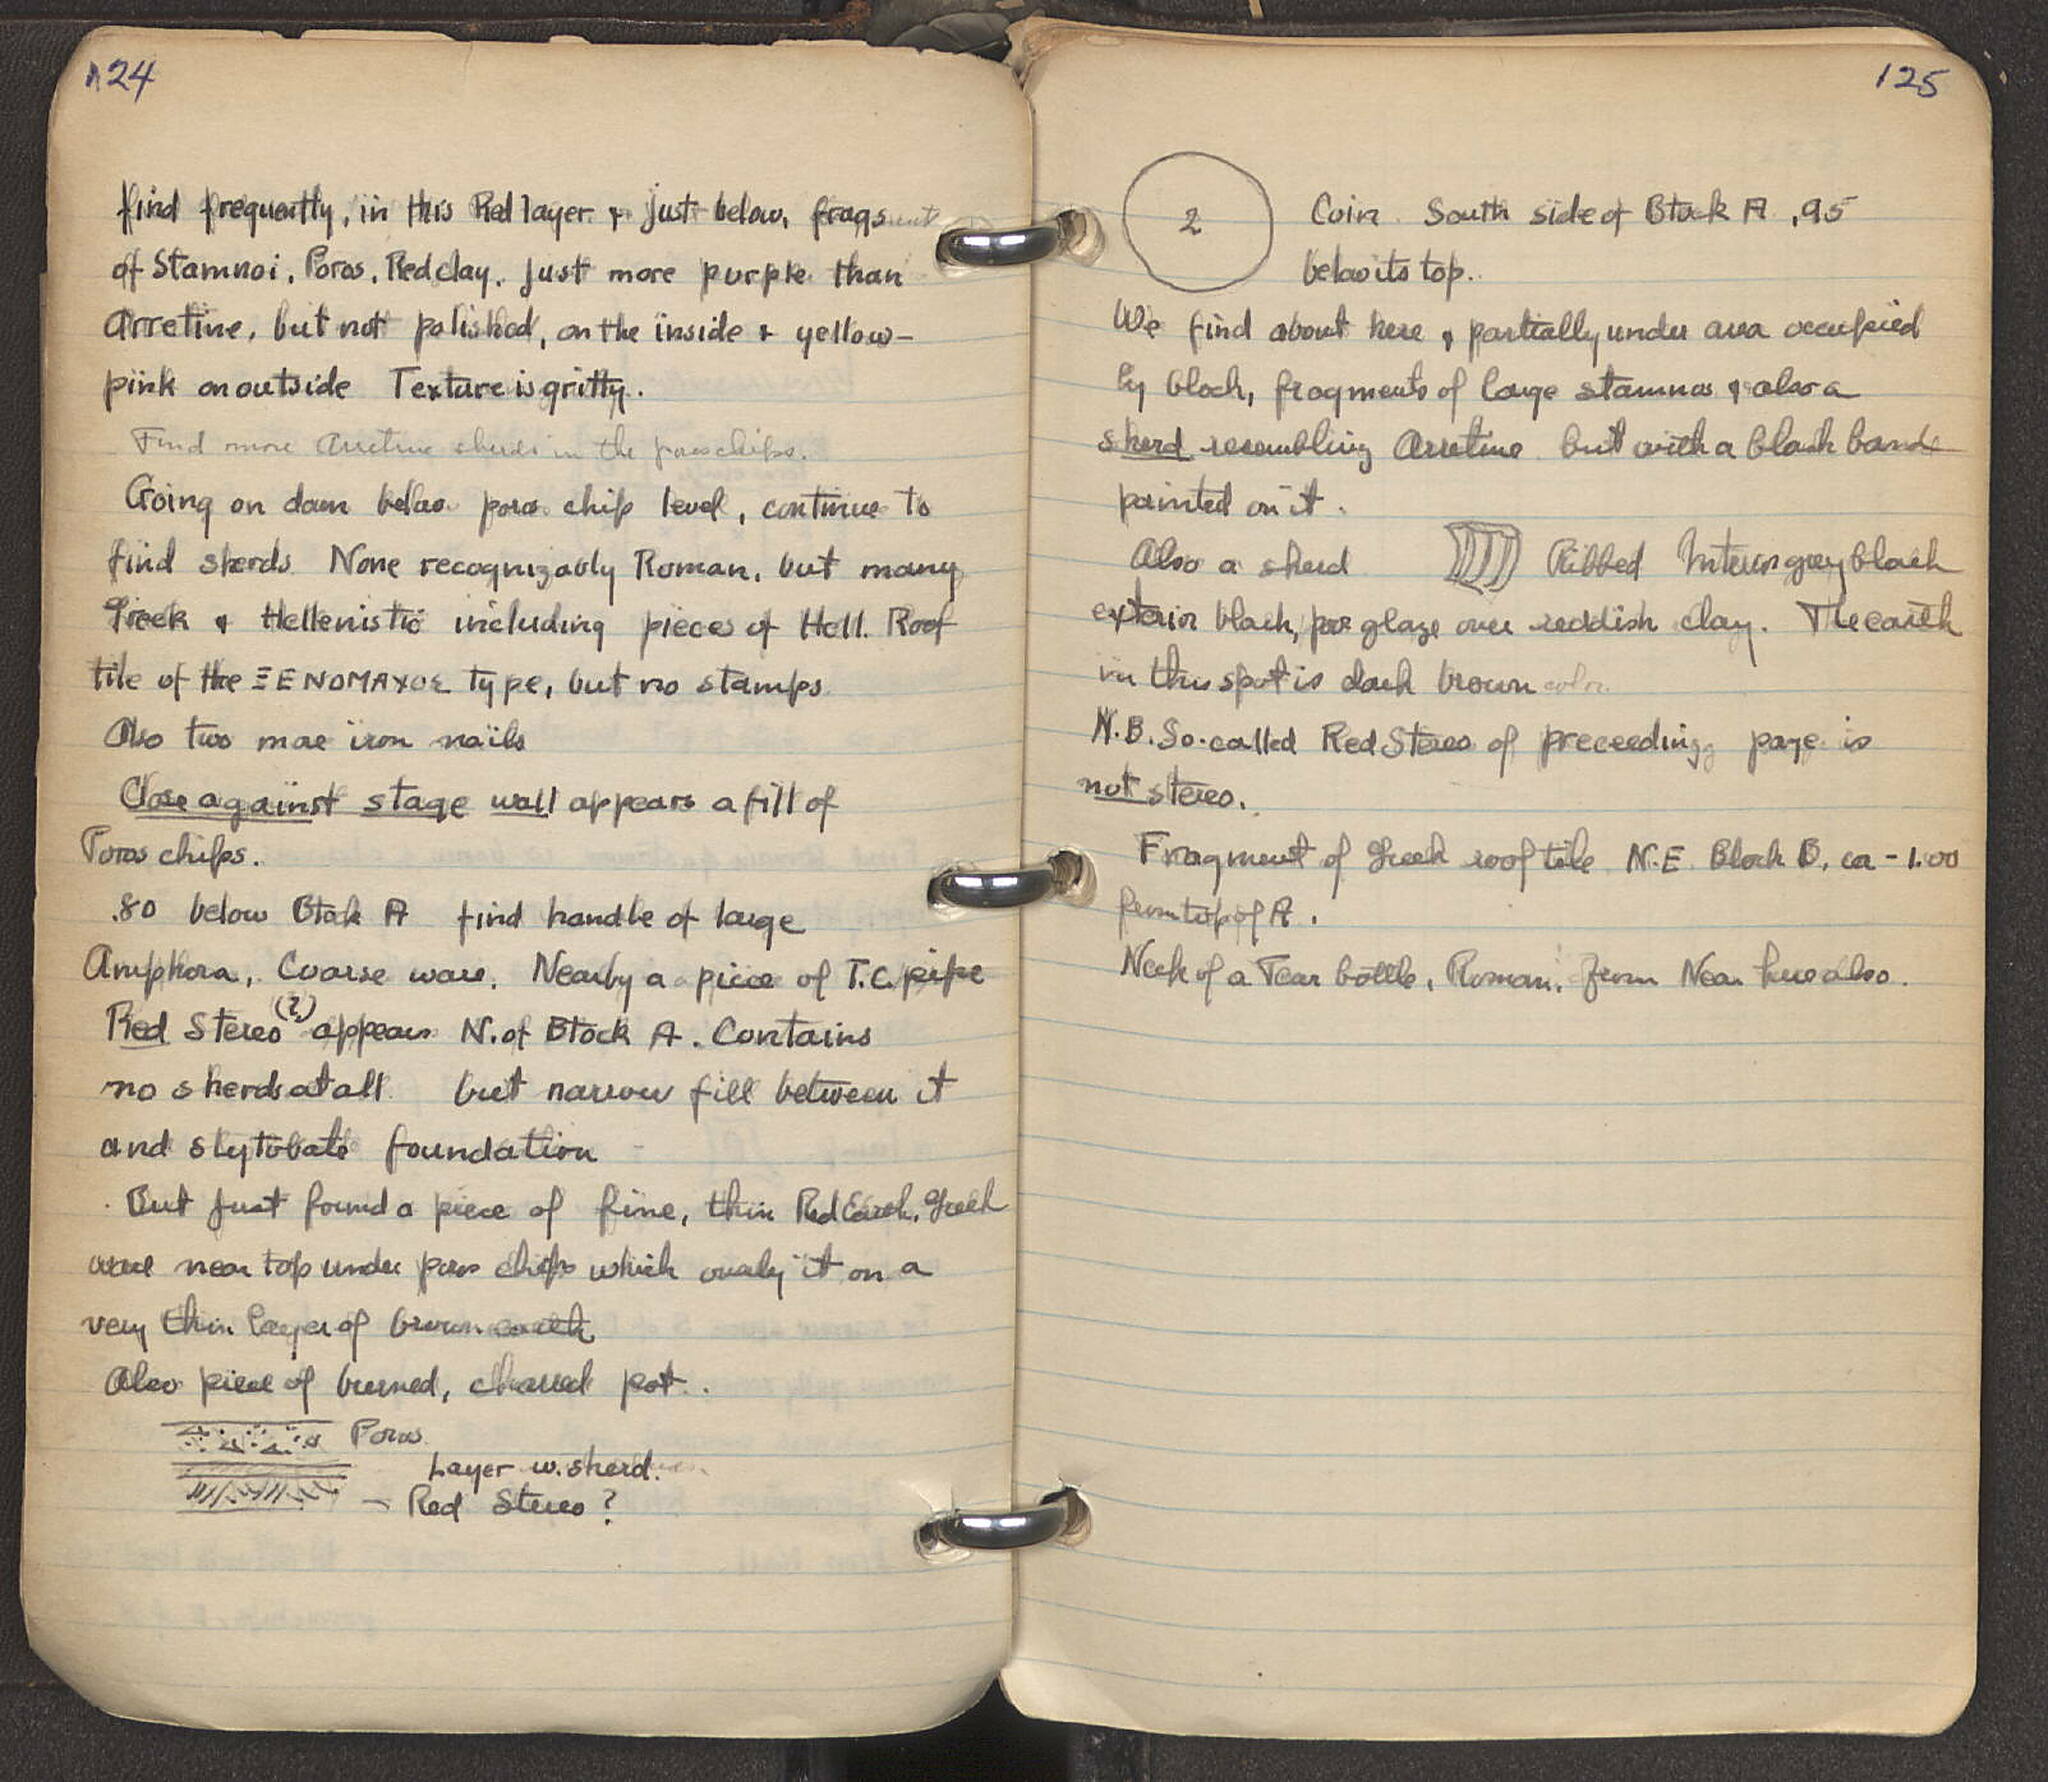 124
find frequently, in this Red layer & just below, fragsment
of Stamnoi, Poros, Red clay, just more purple than
Arretine, but not polished, on the inside & yellow-
pink on outside Texture is gritty.
Find more Arretine sherds in the poros chips.
Going on down below poros chip level, continue to
find sherds. None recognizably Roman, but many
Greek & Hellenistic including pieces of Hell. Roof
tile of the ΞENOMAXOΣ type, but no stamps
Also two more iron nails
Close against stage wall appears a fill of
Poros chips.
.80 below Block A find handle of large
Amphora, Coarse ware. Nearby a piece of T.C. pipe
Red Stereo (?) appears N. of Block A. Contains
no sherds at all but narrow fill between it
and stytobate foundation
But just found a piece of fine, thin Red Earth, Greek
ware near top under poros chips which overly it on a
very thin layer of brown earth
Also piece of burned, charred pot.
Poros
Layer w. sherd.
- Red Stereo?
125
2 Coin South side of Block A .95
below its top.
We find about here & partially under area occupied
by block, fragments of large stamnos & also a
sherd resembling Arretine but with a black band
painted on it.
Also a sherd Ribbed Interior grey black
exterior black, poor glaze over reddish clay. The earth
in this spot is dark brown color.
N.B. So-called Red Stereo of preceeding page is
not stereo.
Fragment of Greek roof tile N.E. Block B, ca - 1.00
from top of A.
Neck of a Tear bottle, Roman, from Near here also.